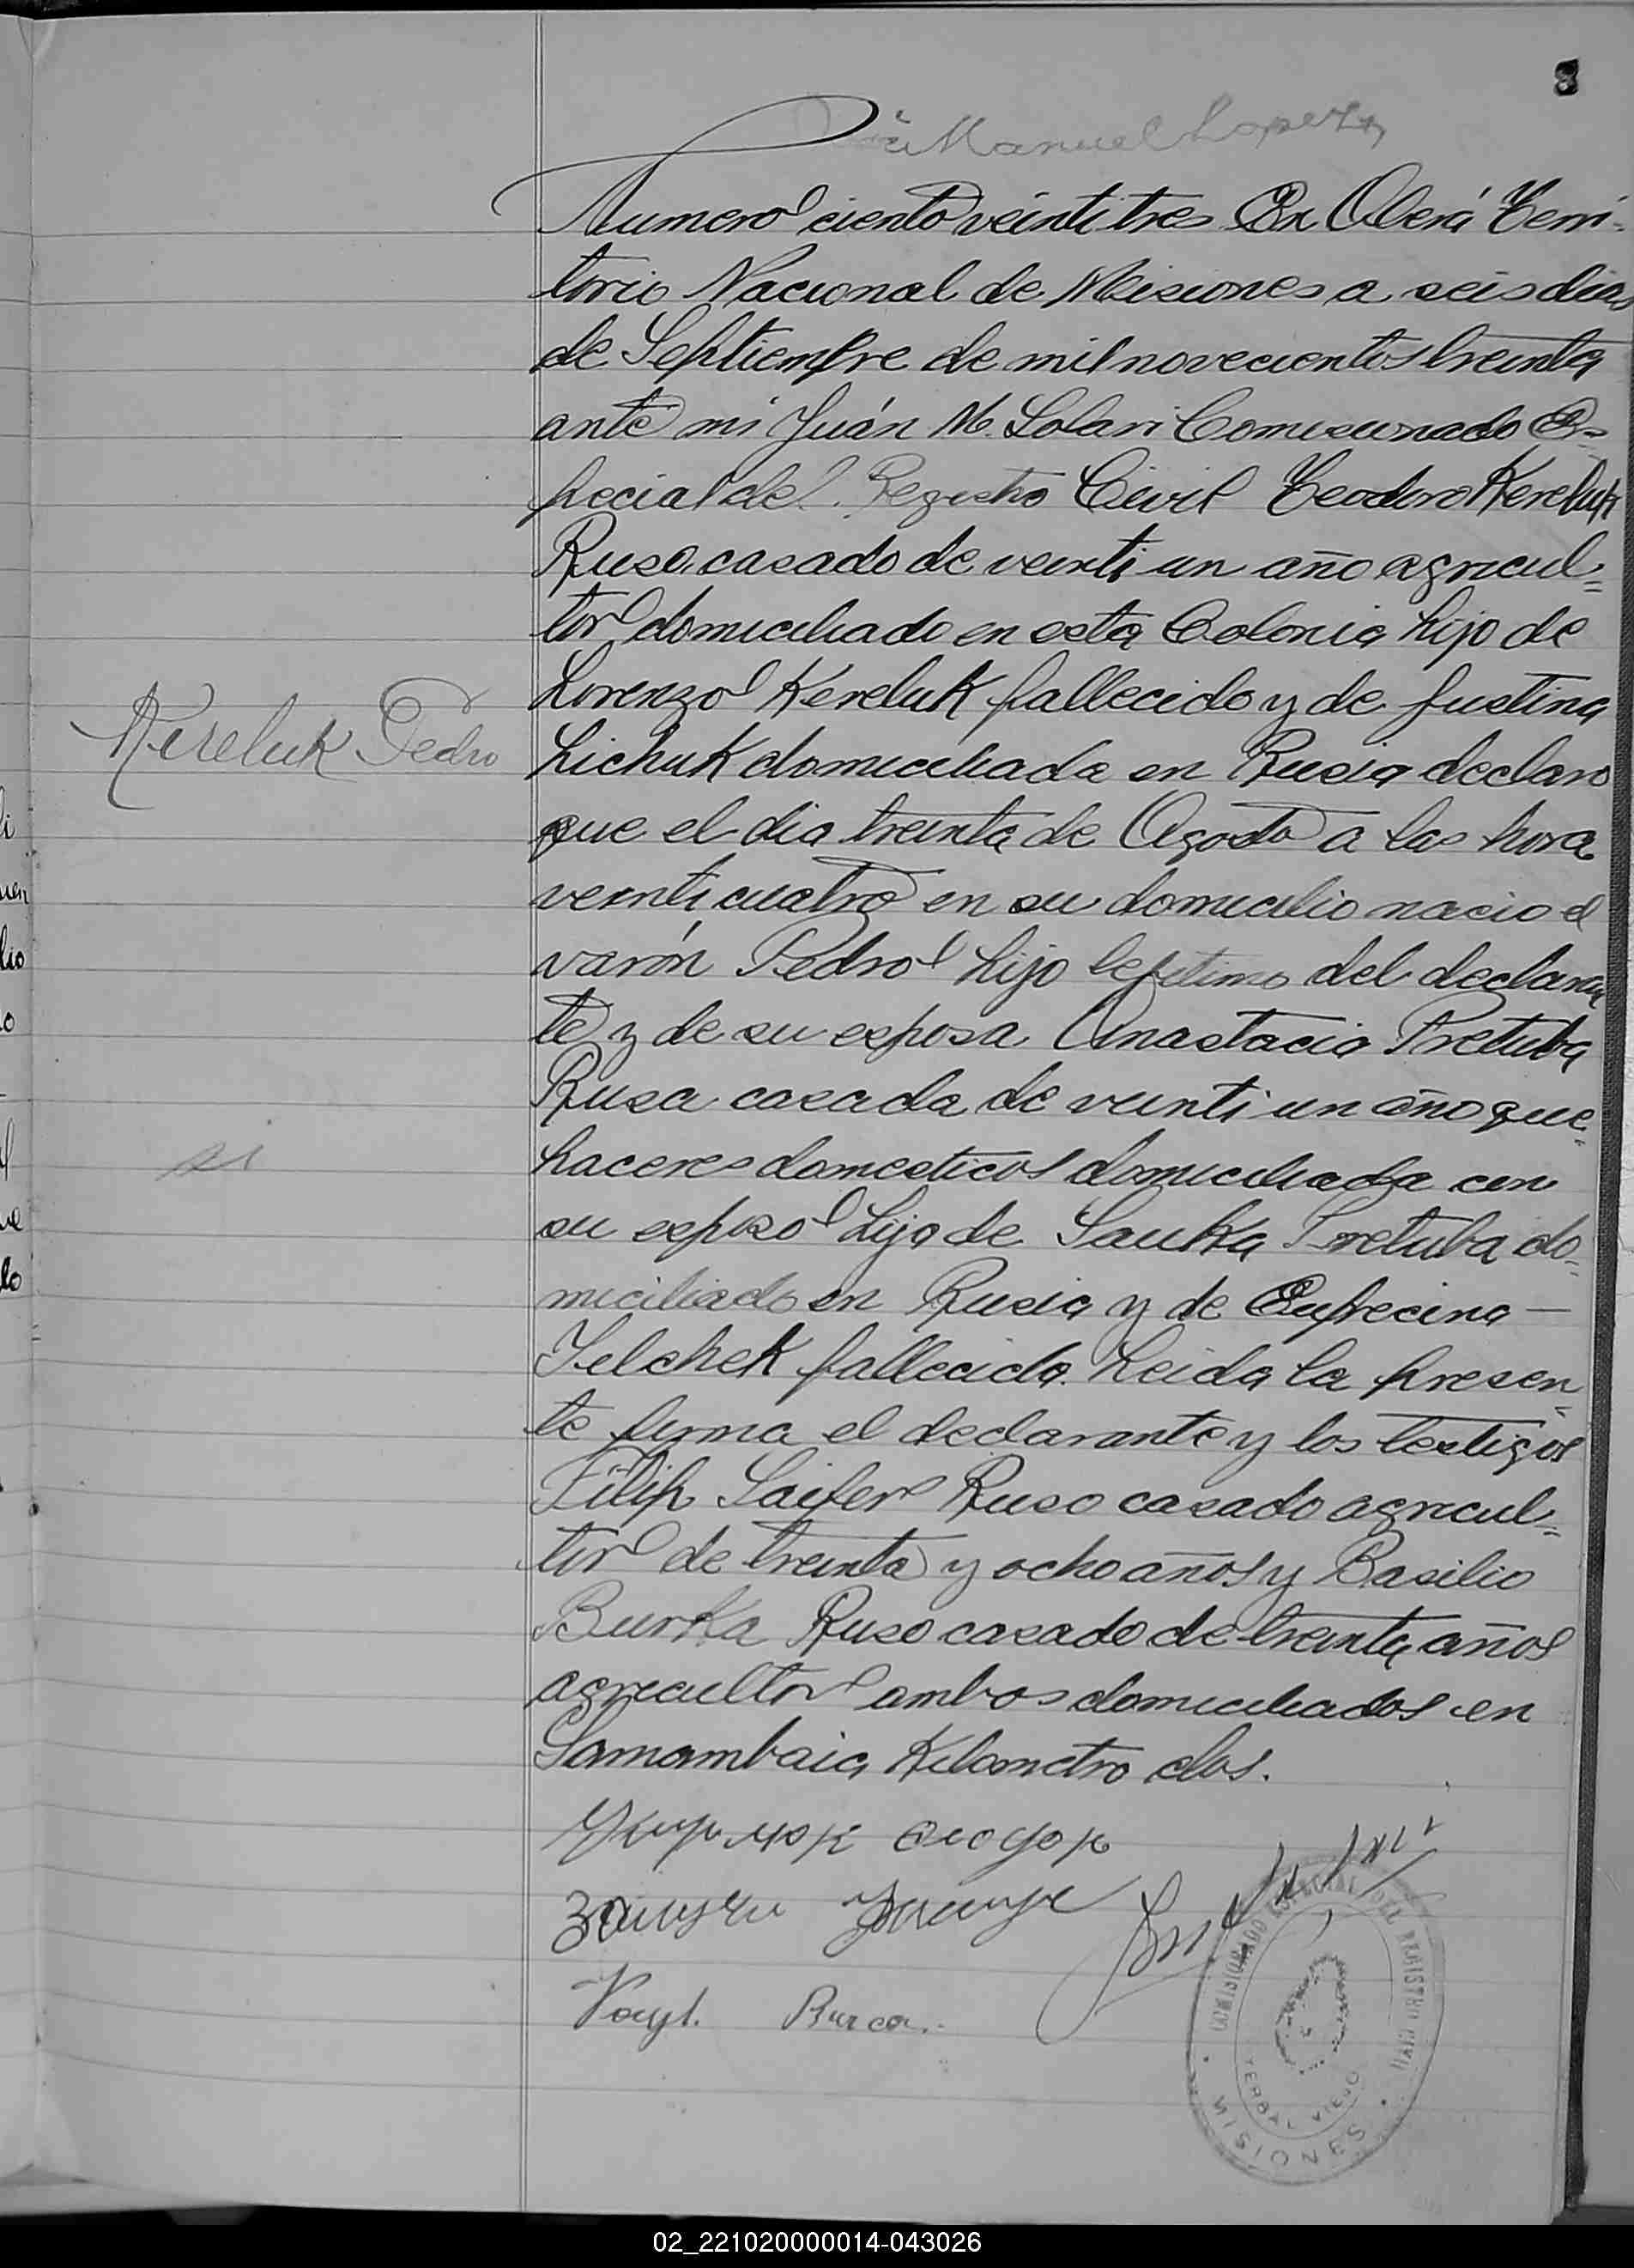 8
Manuel Lopez
Numero ciento veinti tres En Oberá Terri-
torio Nacional de Misiones a seis dias
de Septiembre de mil novecientos treinta
ante mi Juán M. Solari Comisionado Es-
pecial del Registro Civil Teodoro Kereluk
Ruso casado de veinti un año agricul=
tor domiciliado en esta Colonia hijo de
Lorenzo Kereluk fallecido y de Justina
Kereluk Pedro
Lichuk domiciliada en Rusia declaro
que el dia treinta de Agosto a las hora
veinti cuatro en su domicilio nacio el
varón Pedro hijo lejitimo del declaran
te y de su esposa Anastacia Pretuba
Rusa casada de veinti un año que=
si
haceres domesticos domiciliada con
su esposo hija de Sauka Pretuba do=
miciliado en Rusia y de Eufrecina —
Telchek fallecida. Leida la presen=
te firma el declarante y los testigos
Filip Saifer Ruso casado agricul=
tor de treinta y ocho años y Basilio
Burka Ruso casado de treinta años
agricultor ambos domiciliados en
Samambaia Kilometro dos.
Burca.
COMISIONADO ESPECIAL DEL REGISTRO CIVIL
YERBAL VIEJO
MISIONES
02_221020000014-043026